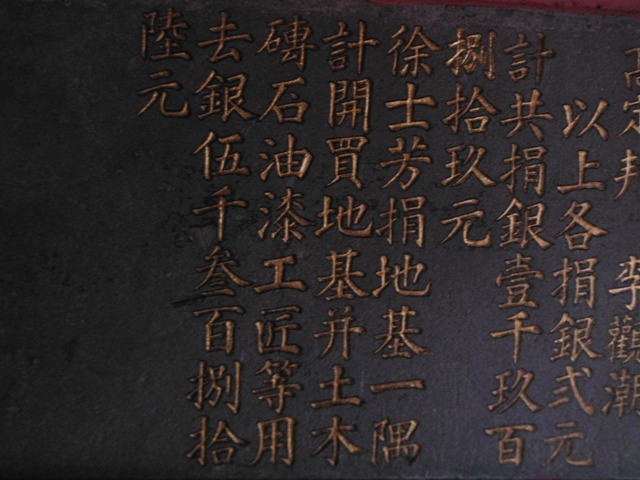 高定邦 李觀潮
以上各捐銀弍元
計共捐銀壹千玖百
捌拾玖元
徐士芳捐地基一隅
計開買地基并土木
磚石油漆工匠等用
去銀伍千叁百捌拾
陸元